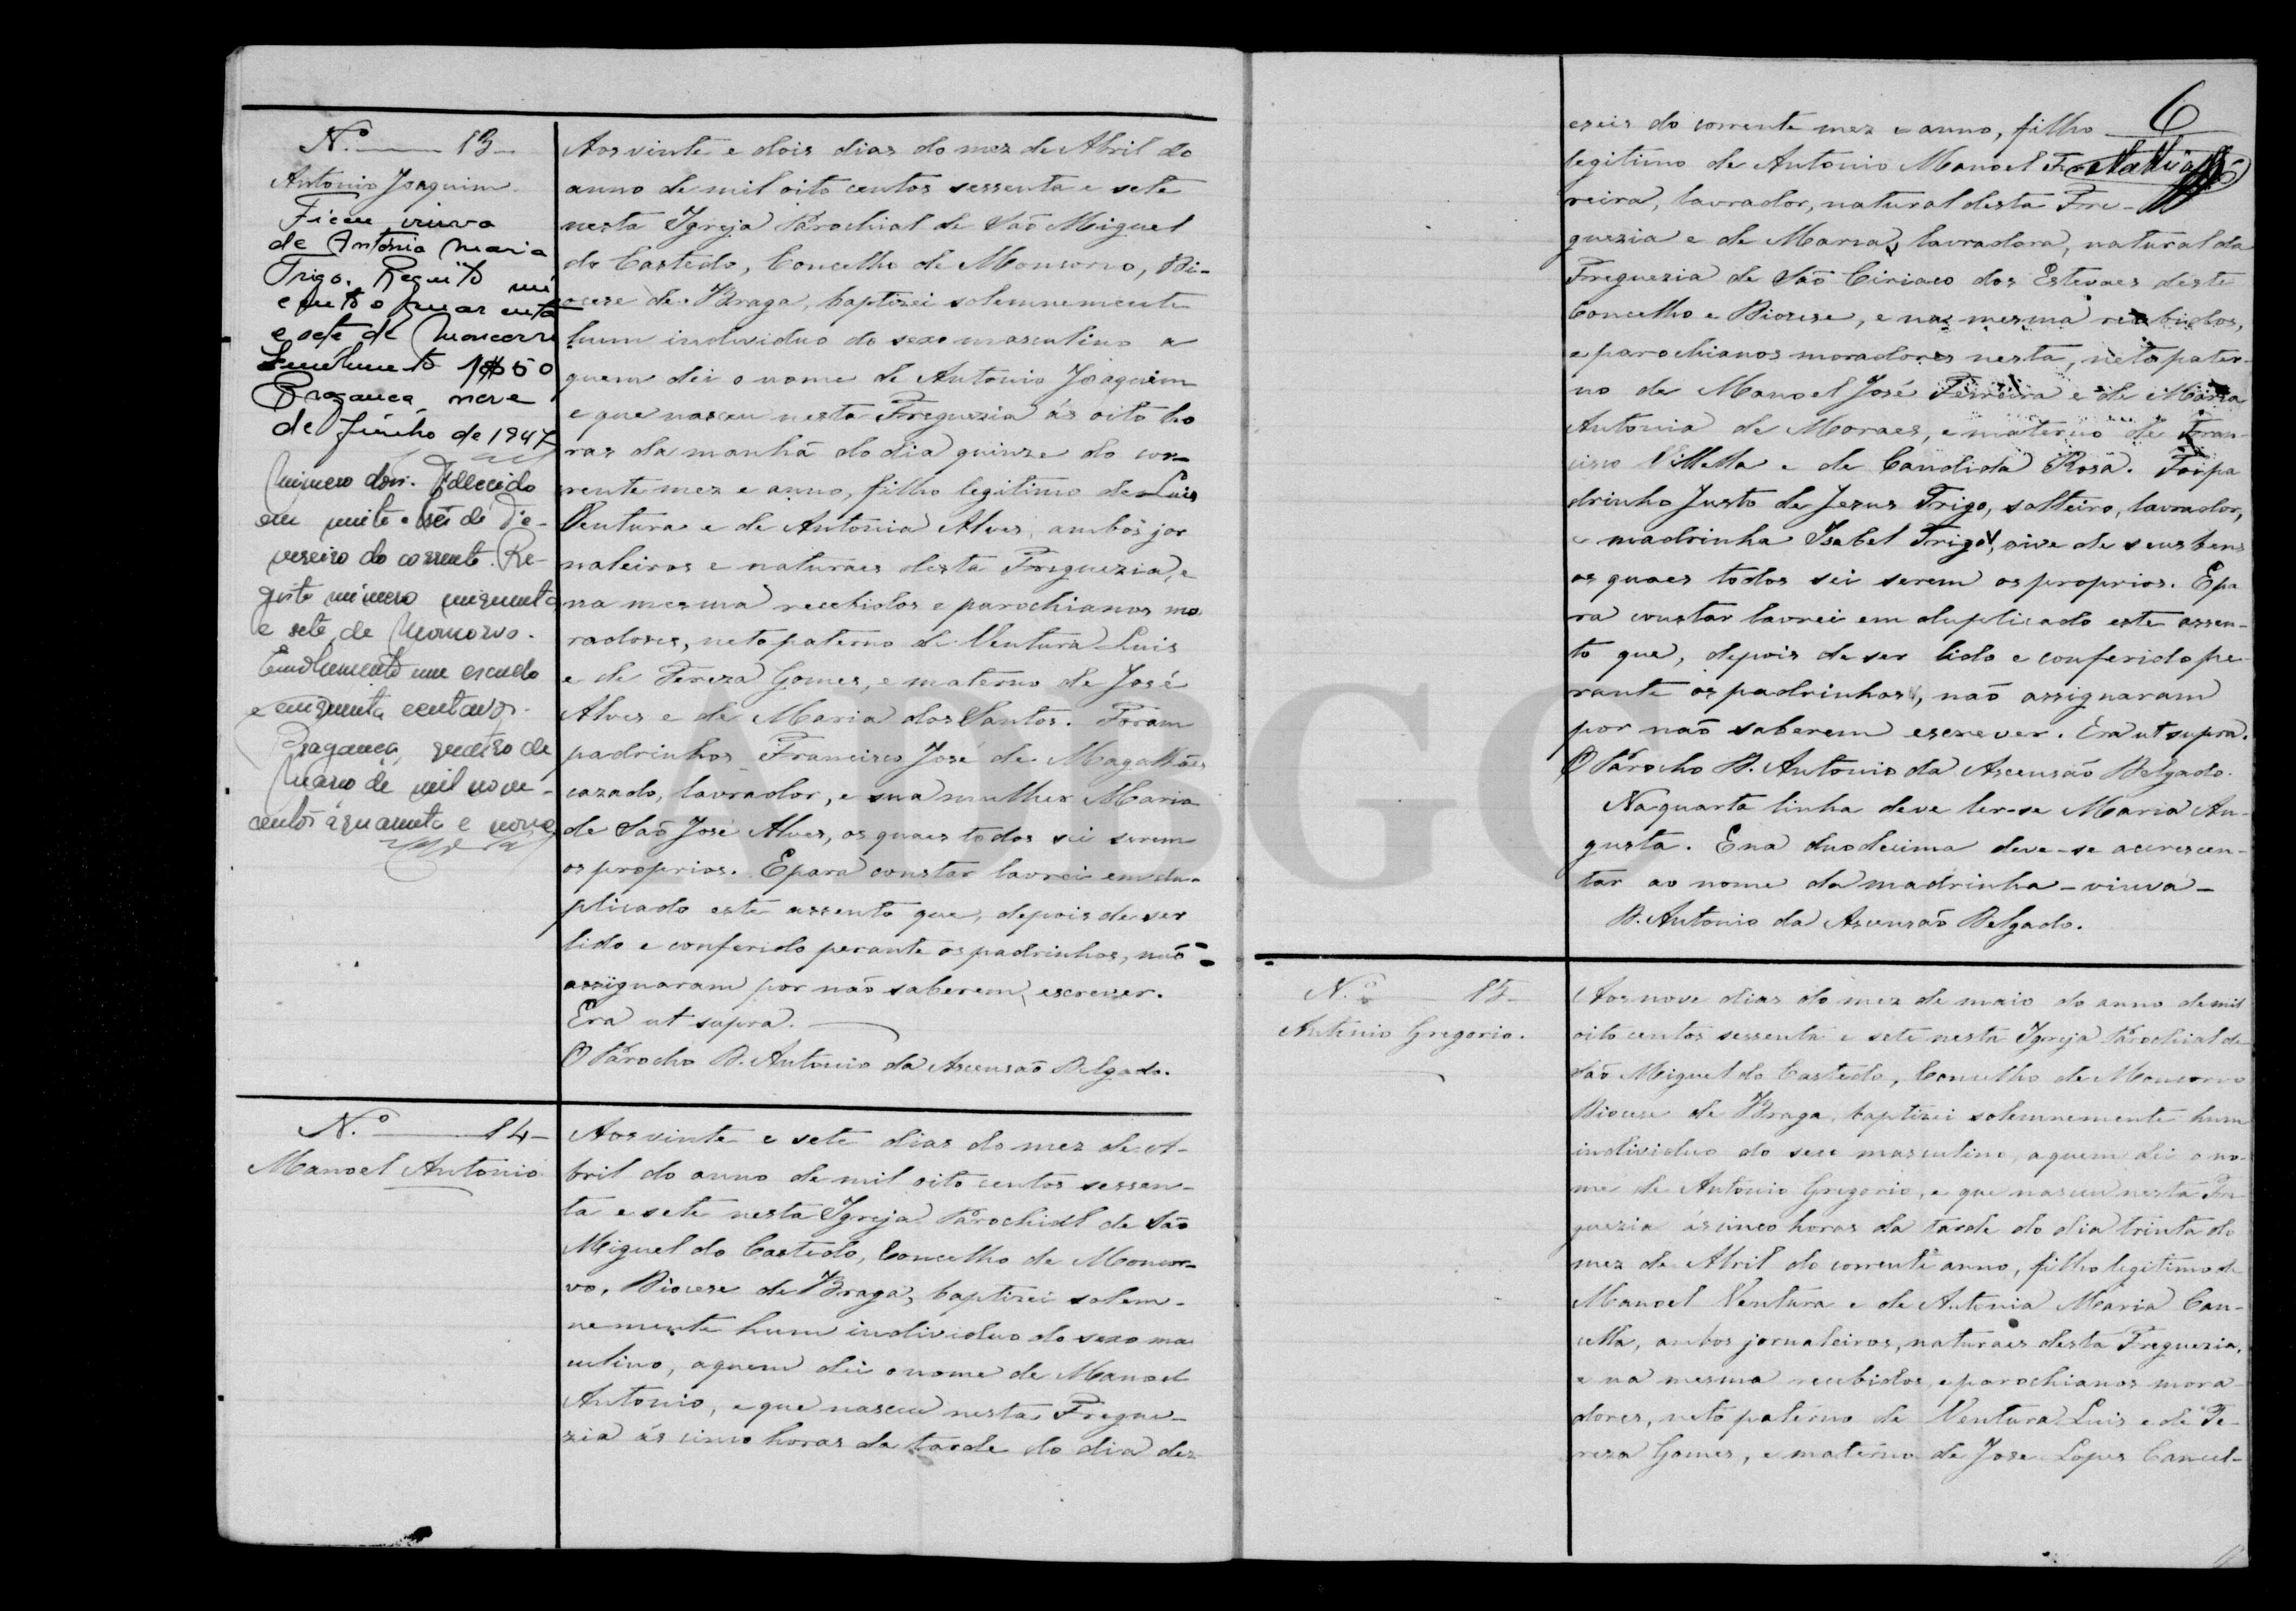 N.º 13
Antonio Joaquim
Ficou viuvo
de Antónia Maria
Trigo. Registo nú
mero quarenta
e sete de Moncorvo
Emolumento 1$50
Bragança, nove
de Junho de 1947
Número dois. Falecido
em vinte e seis de Fe-
vereiro do corrente. Re-
gisto número cinquenta
e sete, de Moncorvo.
Emolumento um escudo
e cinquenta centavos.
Bragança, quatro de
Março de mil nove-
centos e quarenta e nove
Aos vinte e dois dias do mez de Abril do
anno de mil oito centos sessenta e sete
nesta Igreja Parochial de São Miguel
do Castedo, Concelho de Moncorvo, Di-
ocese de Braga, baptizei solemnemente
hum individuo do sexo masculino a
quem dei o nome de Antonio Joaquim
e que nasceu nesta Freguezia ás oito ho
ras da manhã do dia quinze do cor-
rente mez e anno, filho legitimo de Luis
Ventura e de Antonia Alves, ambos jor
naleiros e naturaes desta Freguezia, e
na mesma recebidos e parochianos mo
radores, neto paterno de Ventura Luis
e de Tereza Gomes, e materno de José
Alves e de Maria dos Santos. Foram
padrinhos Francisco José de Magalhães
cazado, lavrador, e sua mulher Maria
de São José Alves, os quaes todos sei serem
os proprios. E para constar lavrei em du-
plicado este assento que, depois de ser
lido e conferido perante os padrinhos, não
assignaram por não saberem escrever.
Era ut supra.
O Parocho D. Antonio da Ascensão Delgado.
N.º 14
Manoel Antonio
Aos vinte e sete dias do mez de A-
bril do anno de mil oito centos sessen-
ta e sete nesta Igreja Parochial de São
Miguel do Castedo, Concelho de Moncor-
vo, Diocese de Braga, baptizei solem-
nemente hum individuo do sexo mas
culino, a quem dei o nome de Manoel
Antonio, e que nasceu nesta Fregue-
zia ás cinco horas da tarde do dia dez
6
eseis do corrente mez e anno, filho
legitimo de Antonio Manoel Fer
reira, lavrador, natural desta Fre-
guezia e de Maria, lavradora, natural da
Freguezia de São Ciriaco dos Estevaes deste
Concelho e Diocese, e na mesma recebidos,
e parochianos moradores nesta, neto pater-
no de Manoel José Ferreira e de Maria
Antonia de Moraes, e materno de Fran-
cisco Villella e de Candida Rosa. Foi pa
drinho Justo de Jezus Trigo, solteiro, lavrador,
e madrinha Isabel Trigo, vive de seus bens
os quaes todos sei serem os proprios. E pa
ra constar lavrei em duplicado este assen-
to que, depois de ser lido e conferido pe-
rante os padrinhos, não assignaram
por não saberem escrever. Era ut supra.
O Parocho D. Antonio da Ascensão Delgado.
Na quarta linha deve ler-se Maria Au-
gusta. E na duodecima deve-se acrescen-
tar ao nome da madrinha - viuva -
D. Antonio da Ascensão Delgado.
N.º 15
Antonio Gregorio.
Aos nove dias do mez de maio do anno de mil
oito centos sessenta e sete nesta Igreja Parochial de
São Miguel do Castedo, Concelho de Moncorvo
Diocese de Braga, baptizei solemnemente hum
individuo do sexo masculino, a quem dei o no-
me de Antonio Gregorio, e que nasceu nesta Fre
guezia ás cinco horas da tarde do dia trinta do
mez de Abril do corrente anno, filho legitimo de
Manoel Ventura e de Antonia Maria Can-
cella, ambos jornaleiros, naturaes desta Freguezia,
e na mesma recebidos, e parochianos mora-
dores, neto paterno de Ventura Luis e de Te-
reza Gomes, e materno de Jose Lopes Cancel-
ADBGC